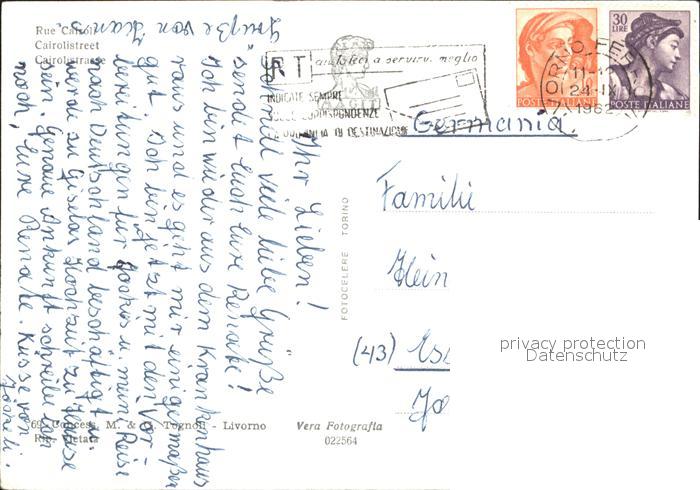 Rue Cairoli
Cairolistreet
Cairolistrasse
Ihr Lieben!
viele liebe Grüße
sendet Euch Eure Renate!
Ich bin wieder aus dem Krankenhaus
raus und es geht mir einigermaßen
gut. Ich bin jetzt mit den Vor-
bereitungen für u. meine Reise
nach Deutschland beschäftigt u.
werde zu Giselas Hochzeit zu Hause
sein. Genaue Ankunft schreibe ich
noch, Eure Renate. Küsse von
Grüße von
aiutateci a servirvi meglio
INDICATE SEMPRE
CORRISPONDENZE
DI DESTINAZIONE
POSTE ITALIANE
30
LIRE
POSTE ITALIANE
LIVORNO FERR
24-IX
1962
Germania
Familie
Hein
(43) Ess
FOTOCELERE TORINO
privacy protection
Datenschutz
69 Concess. M. & G. Tognoli - Livorno
Rip. Vietata
Vera Fotografia
022564